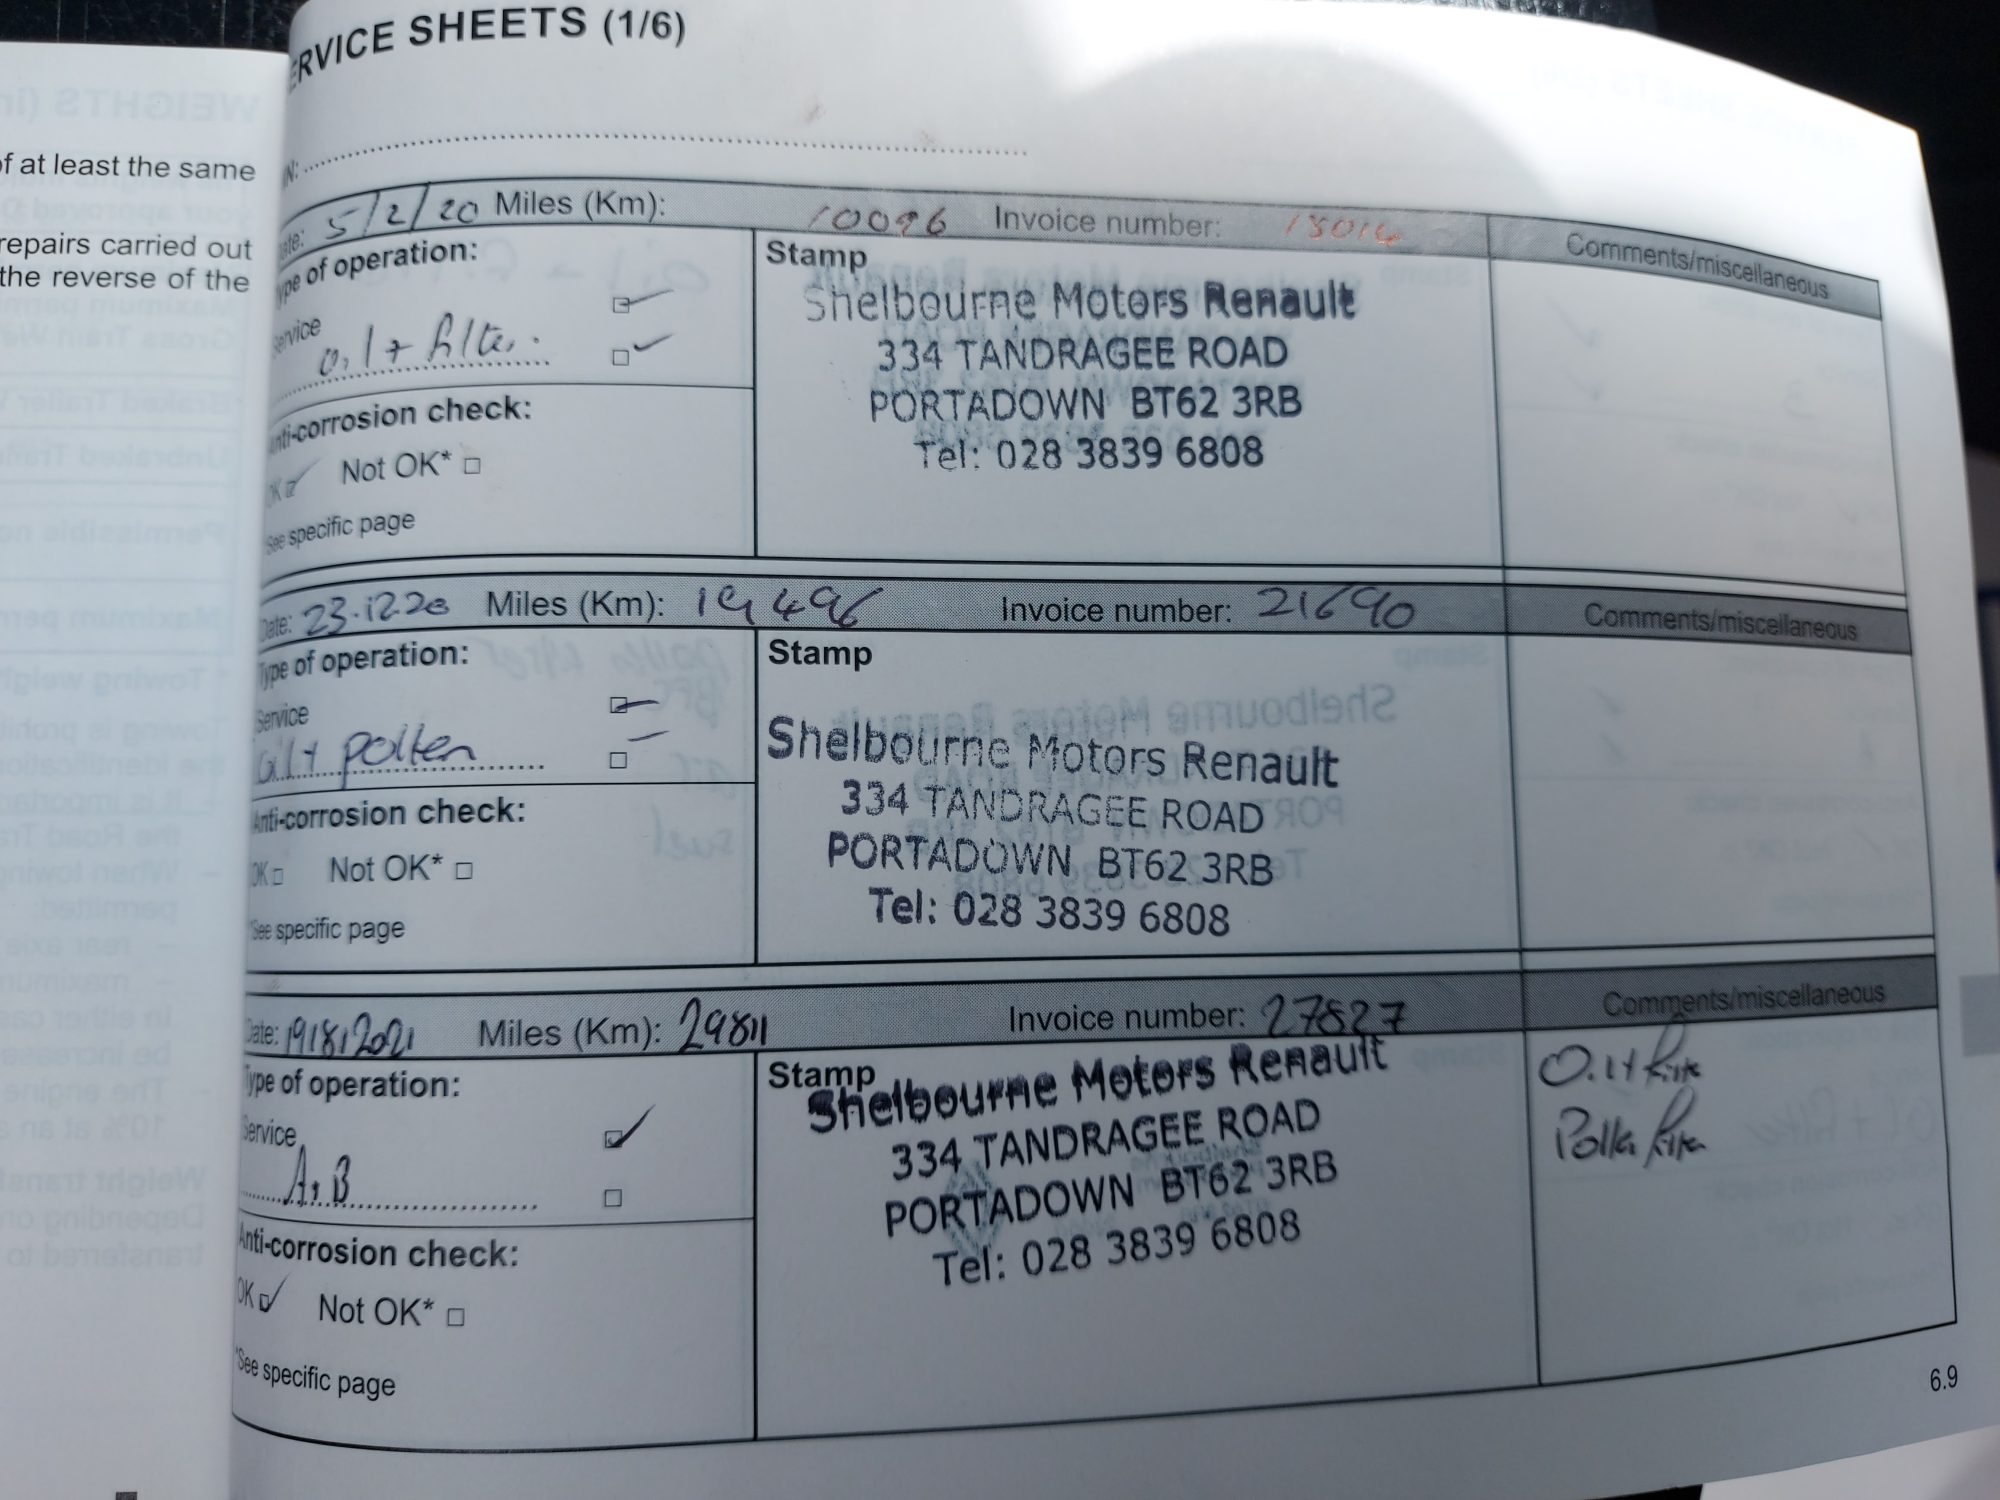 of at least the same
repairs carried out
the reverse of the
SERVICE SHEETS (1/6)
Date: 5/2/20 Miles (Km): 10096 Invoice number: Comments/miscellaneous
Type of operation:
Service
oil + filter.
Anti-corrosion check:
OK Not OK*
*See specific page
Stamp
Shelbourne Motors Renault
334 TANDRAGEE ROAD
PORTADOWN BT62 3RB
Tel: 028 3839 6808
Date: 23.12.20 Miles (Km): 19496 Invoice number: 21690 Comments/miscellaneous
Type of operation:
Service
oil + pollen
Anti-corrosion check:
OK Not OK*
*See specific page
Stamp
Shelbourne Motors Renault
334 TANDRAGEE ROAD
PORTADOWN BT62 3RB
Tel: 028 3839 6808
Date: 19/8/2021 Miles (Km): 29811 Invoice number: 27827 Comments/miscellaneous
Type of operation:
Service
A+B
Anti-corrosion check:
OK Not OK*
*See specific page
Stamp
Shelbourne Motors Renault
334 TANDRAGEE ROAD
PORTADOWN BT62 3RB
Tel: 028 3839 6808
Oil + Filter
Pollen Filter
6.9